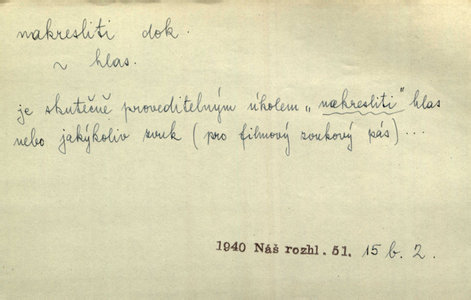 nakresliti dok.
~ hlas.
je skutečně proveditelným úkolem „nakresliti" hlas
nebo jakýkoliv zvuk (pro filmový zvukový pás)...
1940 Náš rozhl. 51. 15 b. 2.